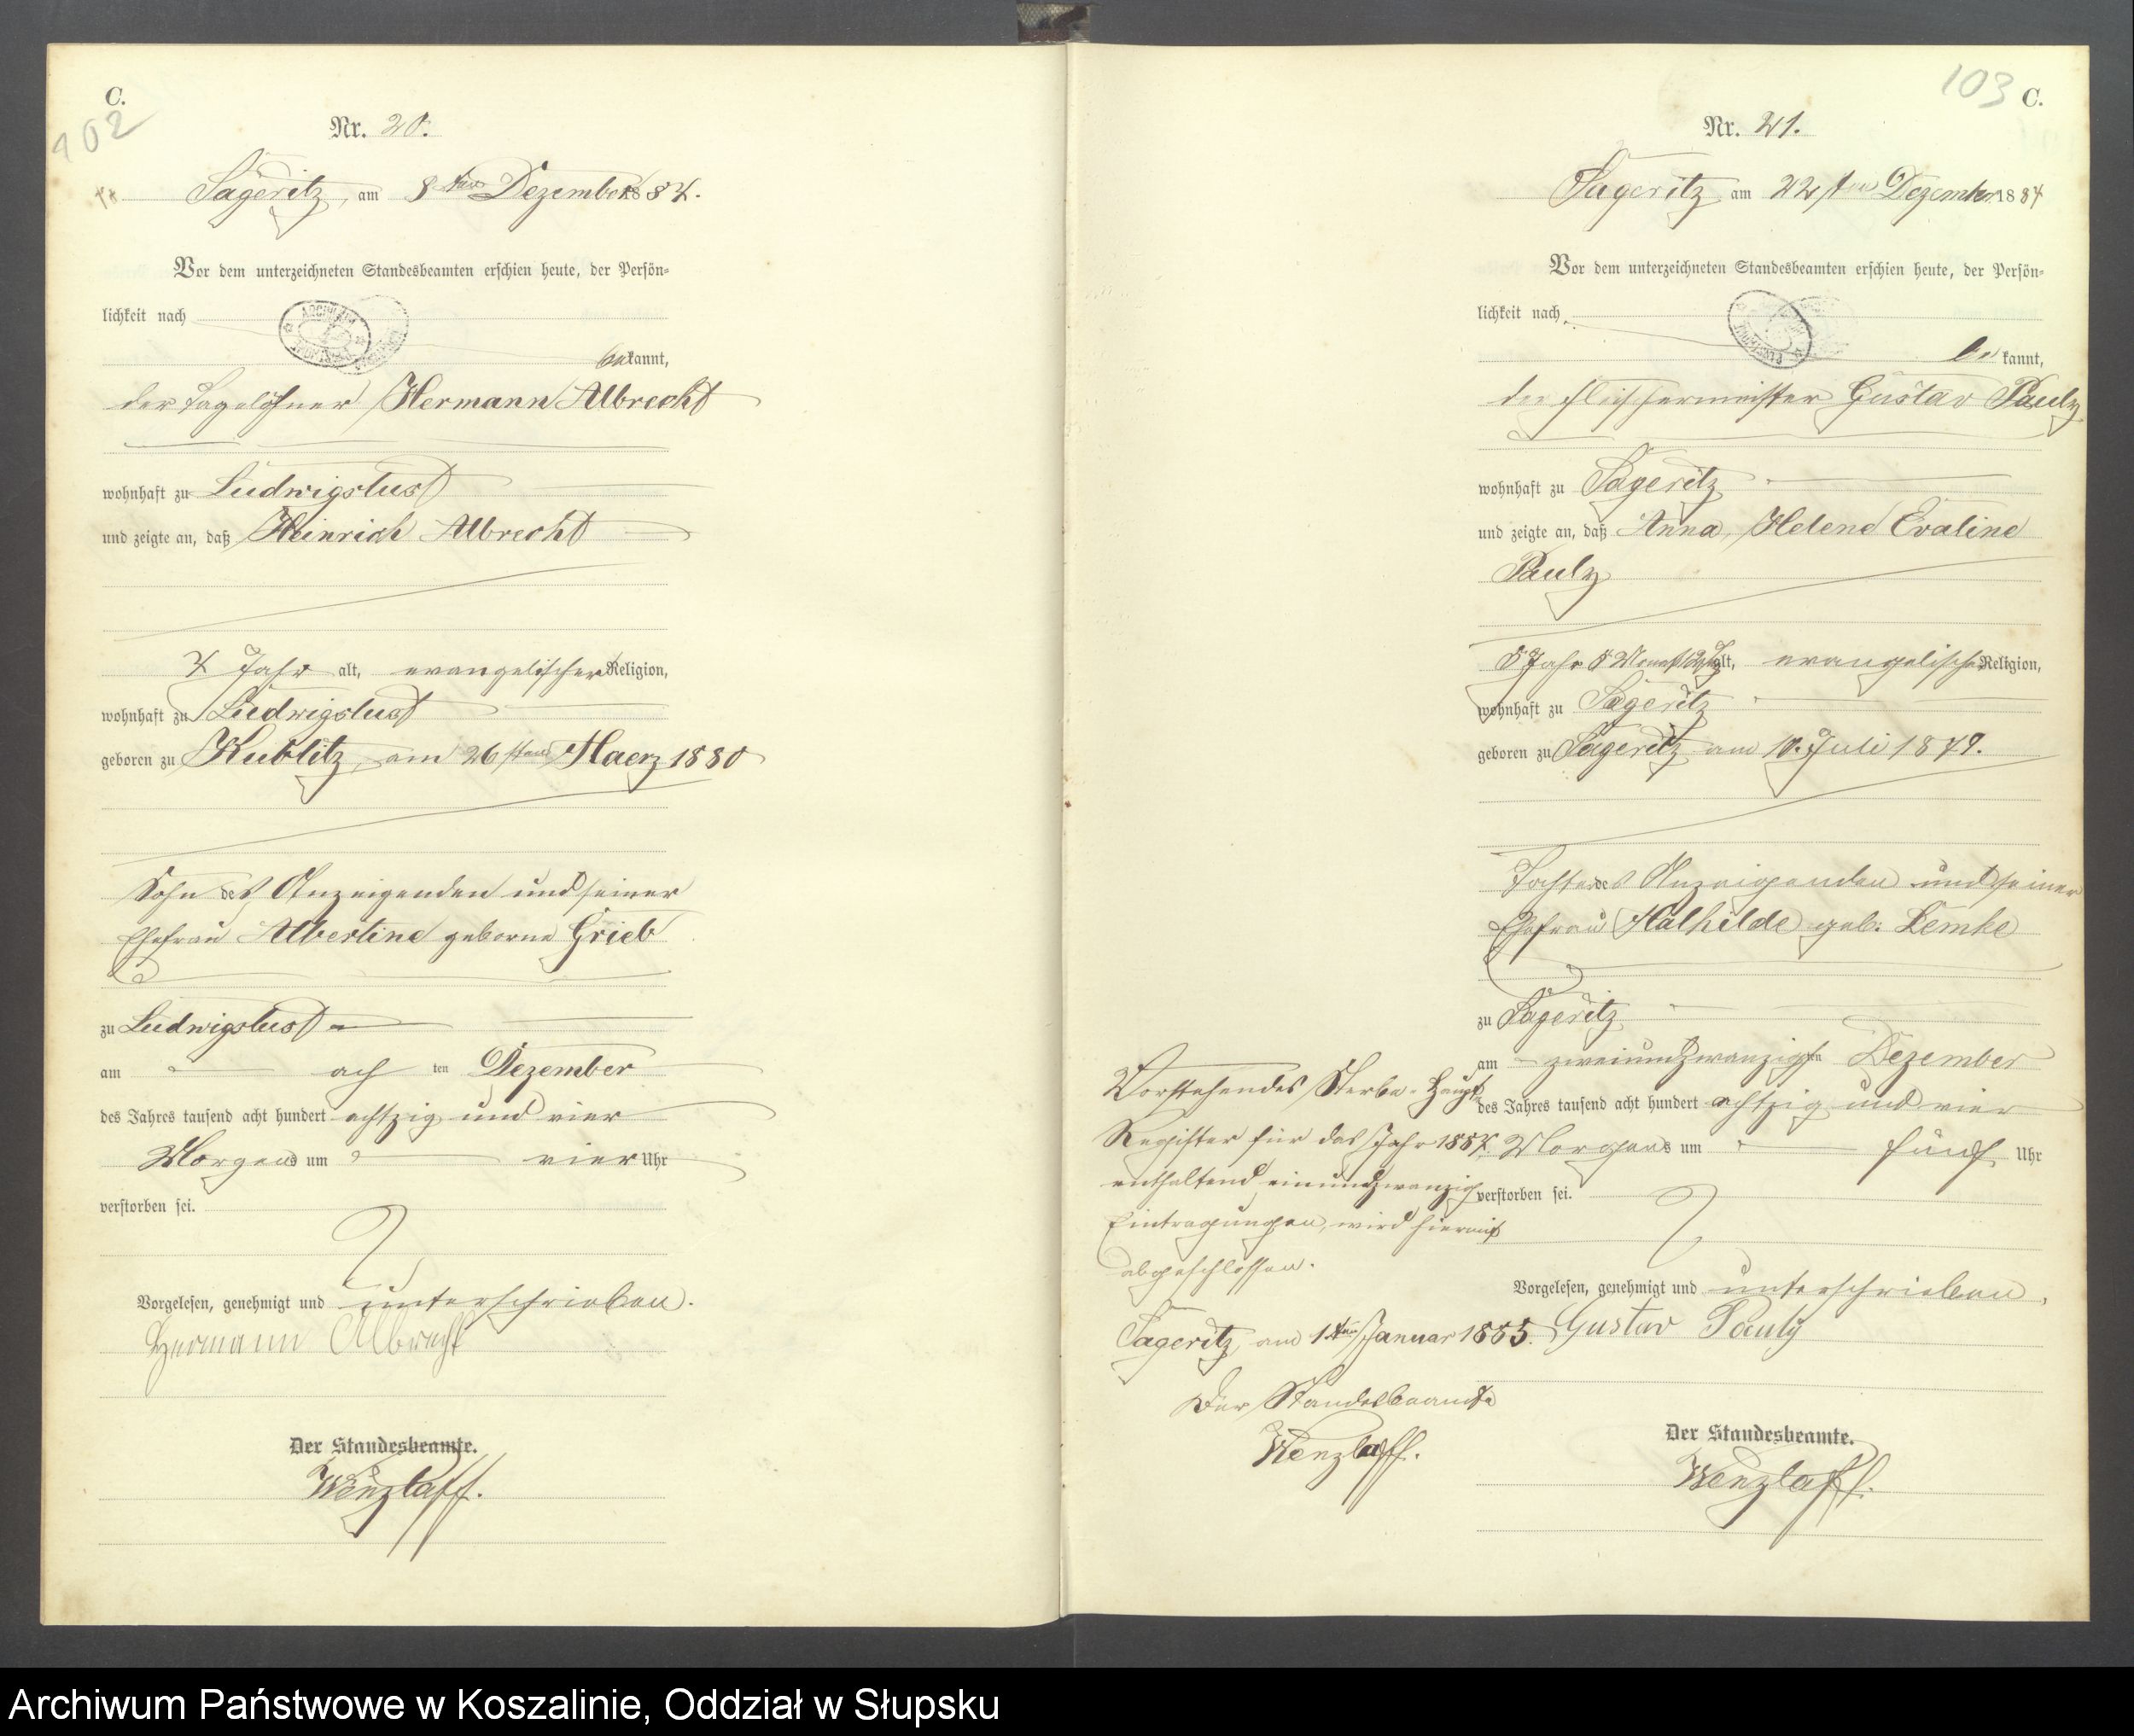 C.
102
Nr. 20.
Sageritz, am 8ten Dezember 1884.
Vor dem unterzeichneten Standesbeamten erschien heute, der Persön-
lichkeit nach
bekannt,
der Tagelöhner Hermann Albrecht
wohnhaft zu Ludwigslust
und zeigte an, daß Heinrich Albrecht
4 Jahr alt, evangelischer Religion,
wohnhaft zu Ludwigslust
geboren zu Kublitz, am 26sten Maerz 1880
Sohn des Anzeigenden und seiner
Ehefrau Albertine geborne Grieb
zu Ludwigslust
am achten Dezember
des Jahres tausend acht hundert achtzig und vier
Morgens um vier Uhr
verstorben sei.
Vorgelesen, genehmigt und unterschrieben.
Hermann Albrecht
Der Standesbeamte.
Wenzlaff.
103 C.
Nr. 21.
Sageritz am 22sten Dezember 1884
Vor dem unterzeichneten Standesbeamten erschien heute, der Persön-
lichkeit nach
bekannt,
der Fleischermeister Gustav Pauly
wohnhaft zu Sageritz
und zeigte an, daß Anna, Helene Evaline
Pauly
5 Jahr 5 Monat 12 Tag alt, evangelischer Religion,
wohnhaft zu Sageritz
geboren zu Sageritz am 10. Juli 1879.
Tochter des Anzeigenden und seiner
Ehefrau Mathilde geb. Lemke
zu Sageritz
am zweiundzwanzigsten Dezember
des Jahres tausend acht hundert achtzig und vier
Morgens um fünf Uhr
verstorben sei.
Vorgelesen, genehmigt und unterschrieben,
Gustav Pauly
Der Standesbeamte.
Wenzlaff.
Vorstehendes Sterbe-Haupt-
Register für das Jahr 1884,
enthaltend einundzwanzig
Eintragungen, wird hiermit
abgeschlossen.
Sageritz, am 1ten Januar 1885.
Der Standesbeamte
Wenzlaff.
Archiwum Państwowe w Koszalinie, Oddział w Słupsku